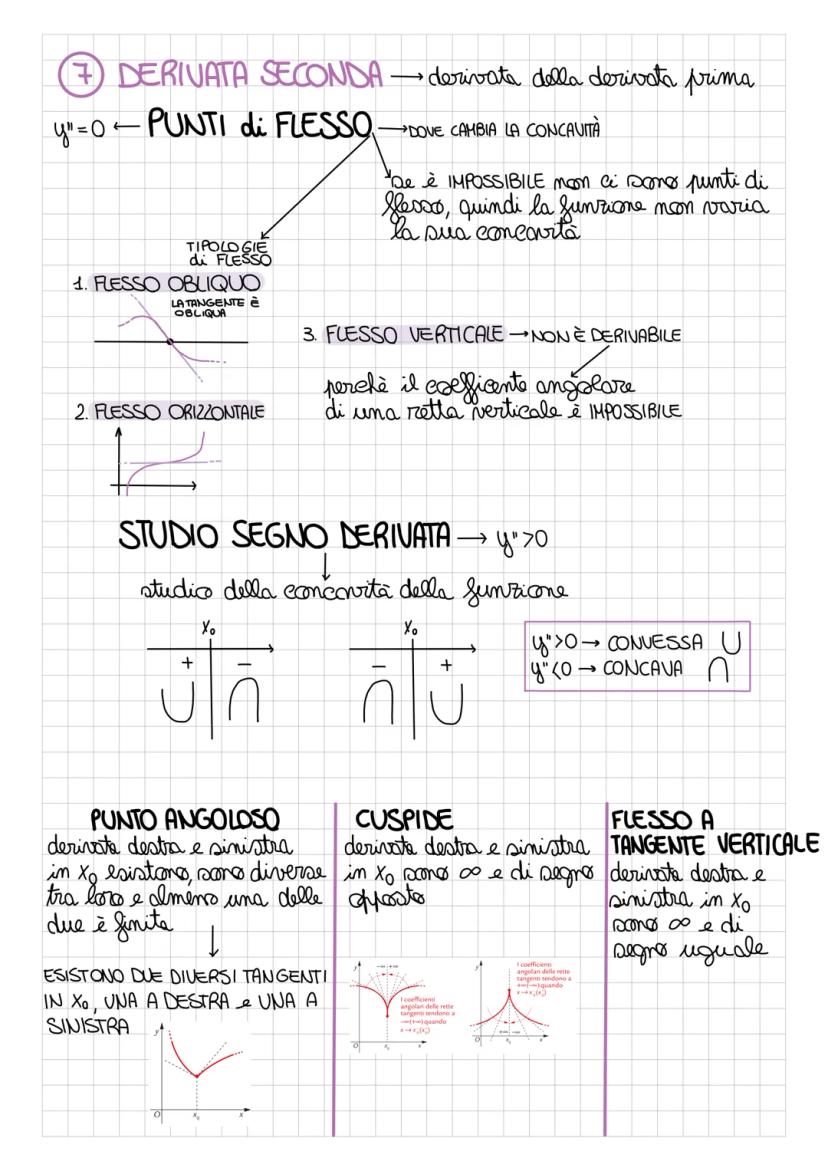 7 DERIVATA SECONDA → derivata della derivata prima
y"=0 ← PUNTI di FLESSO → DOVE CAMBIA LA CONCAVITÀ
se è IMPOSSIBILE non ci sono punti di
flesso, quindi la funzione non varia
la sua concavità
TIPOLOGIE
di FLESSO
1. FLESSO OBLIQUO
LA TANGENTE È
OBLIQUA
3. FLESSO VERTICALE → NON È DERIVABILE
perchè il coefficente angolare
di una retta verticale è IMPOSSIBILE
2. FLESSO ORIZZONTALE
STUDIO SEGNO DERIVATA → y">0
studio della concavità della funzione
x₀
+ −
x₀
− +
y">0 → CONVESSA ∪
y"<0 → CONCAVA ∩
PUNTO ANGOLOSO
derivata destra e sinistra
in x₀ esistono, sono diverse
tra loro e almeno una delle
due è finita
ESISTONO DUE DIVERSI TANGENTI
IN X₀, UNA A DESTRA e UNA A
SINISTRA
y
O x₀ x
CUSPIDE
derivata destra e sinistra
in x₀ sono ∞ e di segno
opposto
y
−∞ +∞
I coefficienti
angolari delle rette
tangenti tendono a
−∞(+∞) quando
x→x₀⁻(x₀⁺)
O x₀ x
y
I coefficienti
angolari delle rette
tangenti tendono a
+∞(−∞) quando
x→x₀⁻(x₀⁺)
+∞ −∞
O x₀ x
FLESSO A
TANGENTE VERTICALE
derivata destra e
sinistra in x₀
sono ∞ e di
segno uguale